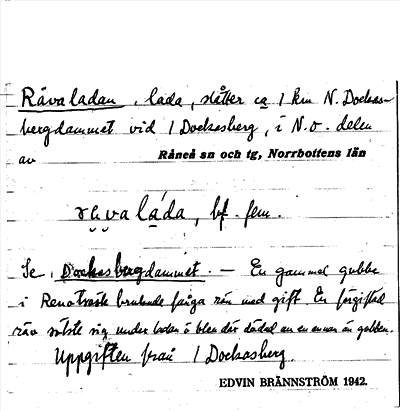 Råvaladan, lada, slåtter ca 1 km N. Dockas-
bergdammet vid 1 Dockasberg, i N.O. delen
av Råneå sn och tg, Norrbottens län
lada, bf. fem.
Se Dockasbergdammet. — En gammal gubbe
i Renoträsk brukade fånga räv med gift En förgiftad
räv satste sig under ladan o blev där dödad av en annan än gubben.
Uppgiften från 1 Dockasberg.
EDVIN BRÄNNSTRÖM 1942.